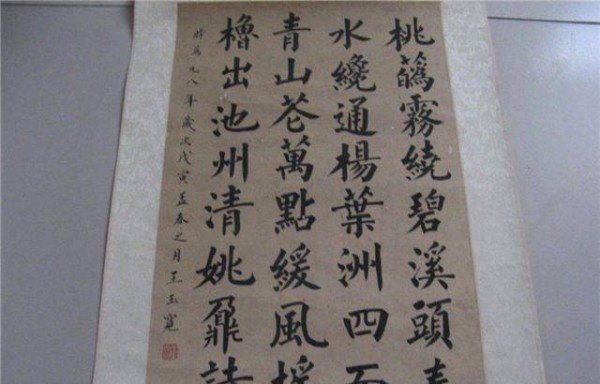 桃蘤霧繞碧溪頭春
水纔通楊葉洲四面
青山芲萬點緩風搖
櫓出池州清姚鼐詩
時為九八年歲次戊寅孟春之月王玉寬